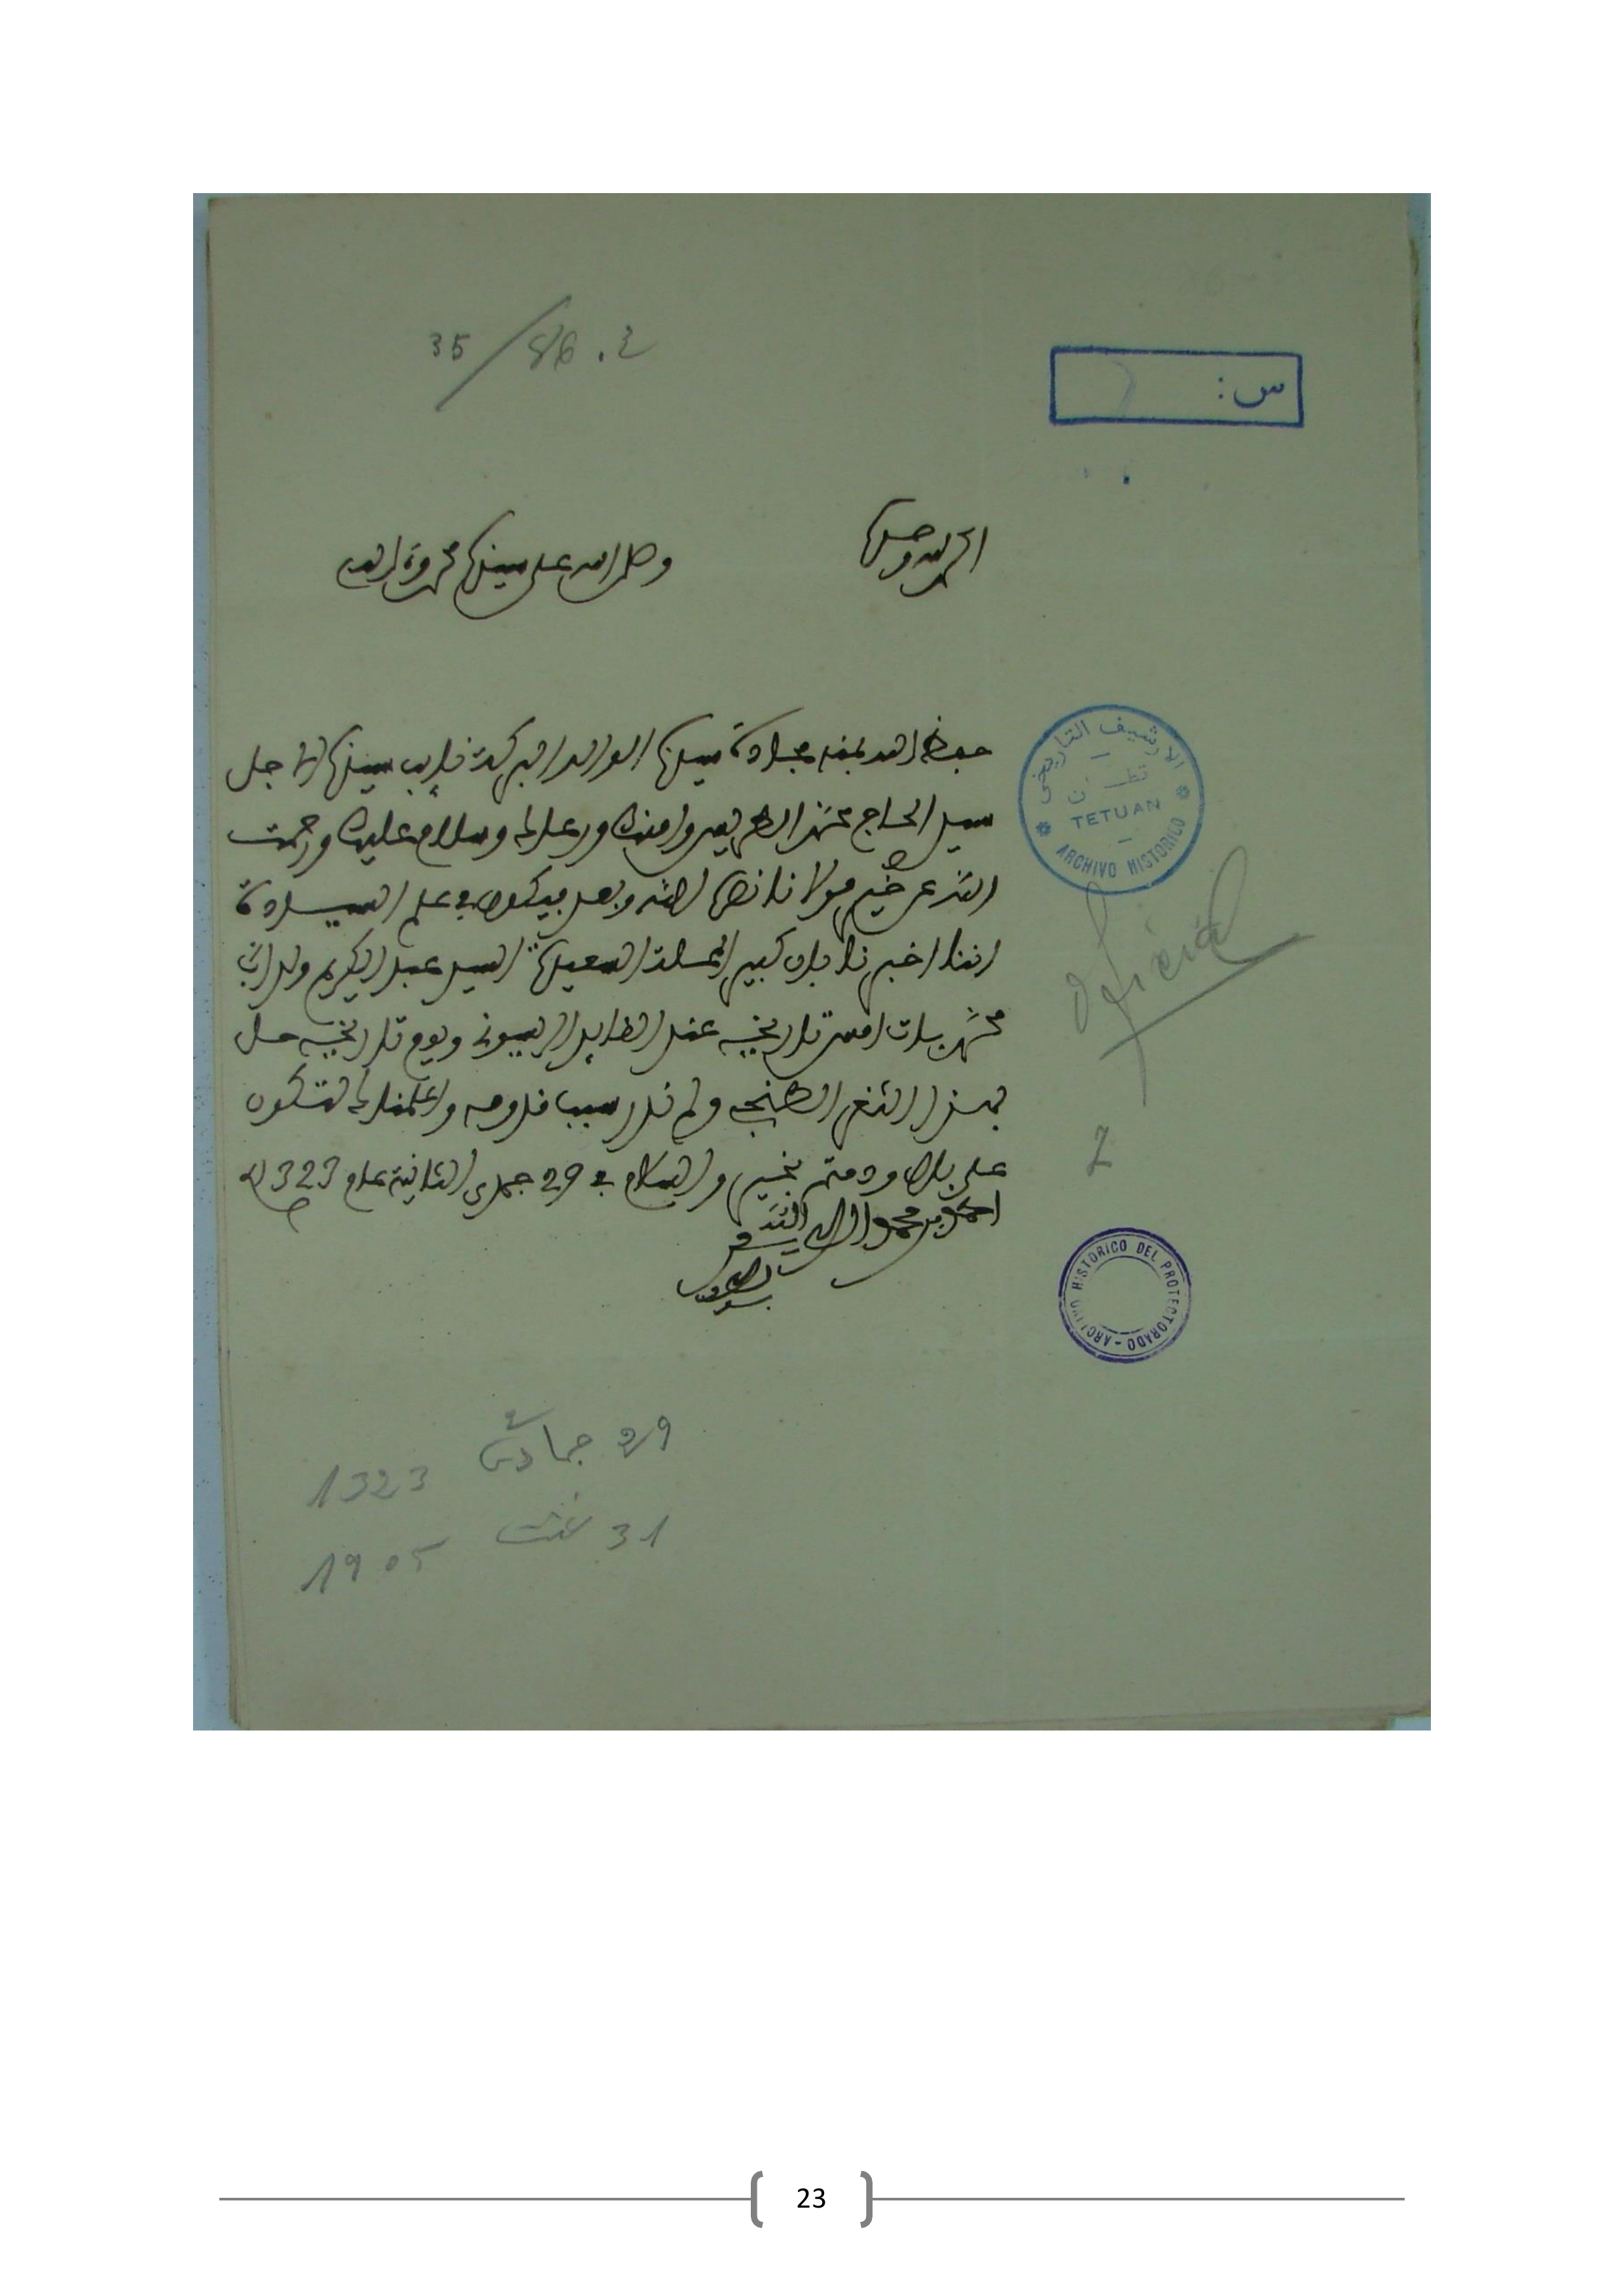 35/86.2
س:
الحمد لله وحده
وصلى الله على سيدنا محمد وءاله
حفظ الله بمنه مجادة سيدنا الوالد البركة نايب سيدنا الاجل
سيدي الحاج محمد الطريس وامنك ورعاك وسلام عليك ورحمت
الله عن خير مولانا نصره الله وبعد فيكون في علم السيادة
اننا اخبرنا بان كبير المحلة السعيدة السيد عبد الكريم ولد ابا
محمد بات امس تاريخه عند القايد الريسوني ويوم تاريخه حل
بهذا الثغر الطنجي ولم ندر سبب قدومه واعلمناك لتكون
على بال ودمتم بخير والسلام في 29 جمدى الثانية عام 1323
احمد بن محمد
الارشيف التاريخي
تطـــــوان
TETUAN
ARCHIVO HISTORICO
Oficial
ARCHIVO HISTORICO DEL PROTECTORADO
29 جمادى 2 1323
31 غشت 1905
23